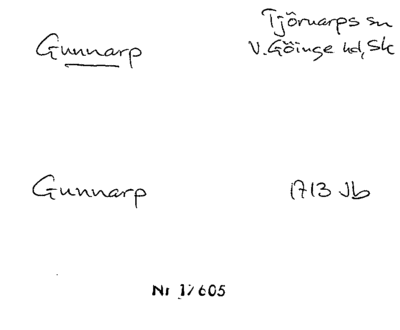 Gunnarp
Tjörnarps sn
V. Göinge hd, Sk
Gunnarp
1713 Jb
Nr 17605